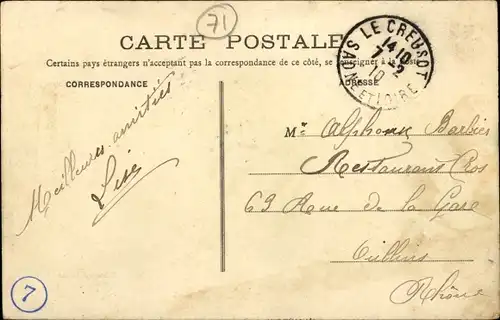 71
CARTE POSTALE
Certains pays étrangers n'acceptant pas la correspondance de ce côté, se renseigner à la Poste
CORRESPONDANCE
ADRESSE
LE CREUSOT
14 10
7 - 2
10
SAONE-ET-LOIRE
Meilleures amitiés
Mr Alphonse Barbier
Restaurant Cros
63 Rue de la Gare
Oullins
Rhône
7